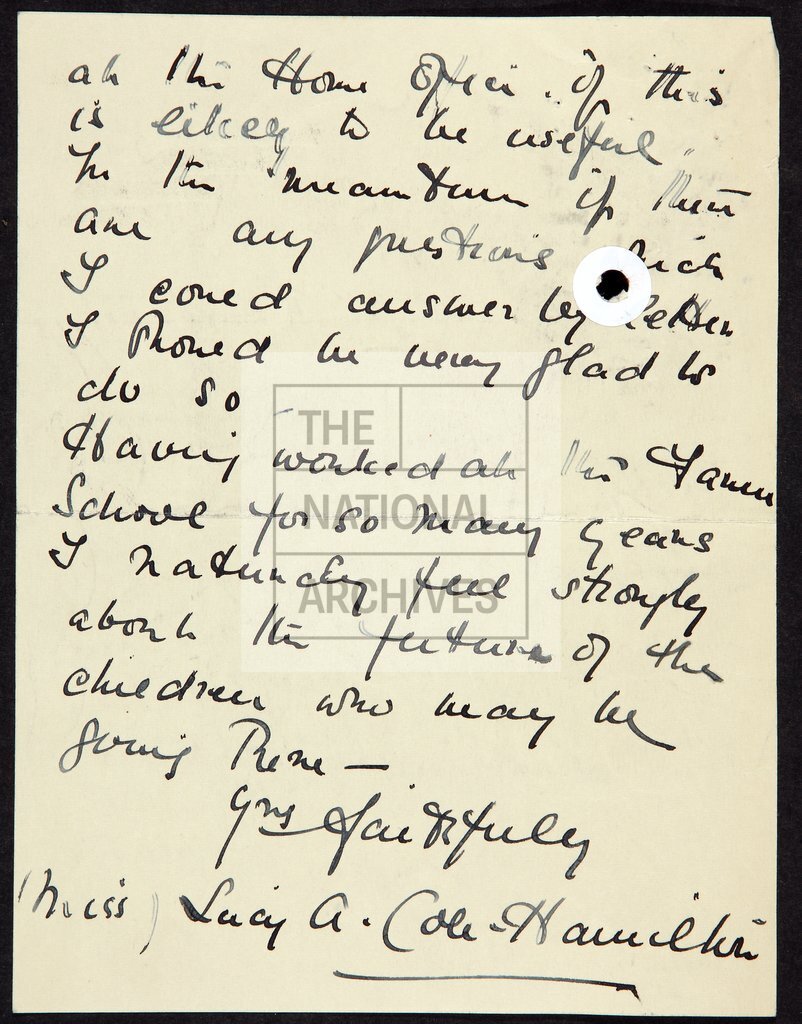 at the Home Office. if this
is likely to be useful.
In the meantime if there
are any questions which
I could answer by letter
I should be very glad to
do so
Having worked at the Farm
School for so many years
I naturally feel strongly
about the future of the
children who may be
going there —
Yrs faithfully
(Miss) Lucy A. Cole-Hamilton
THE
NATIONAL
ARCHIVES